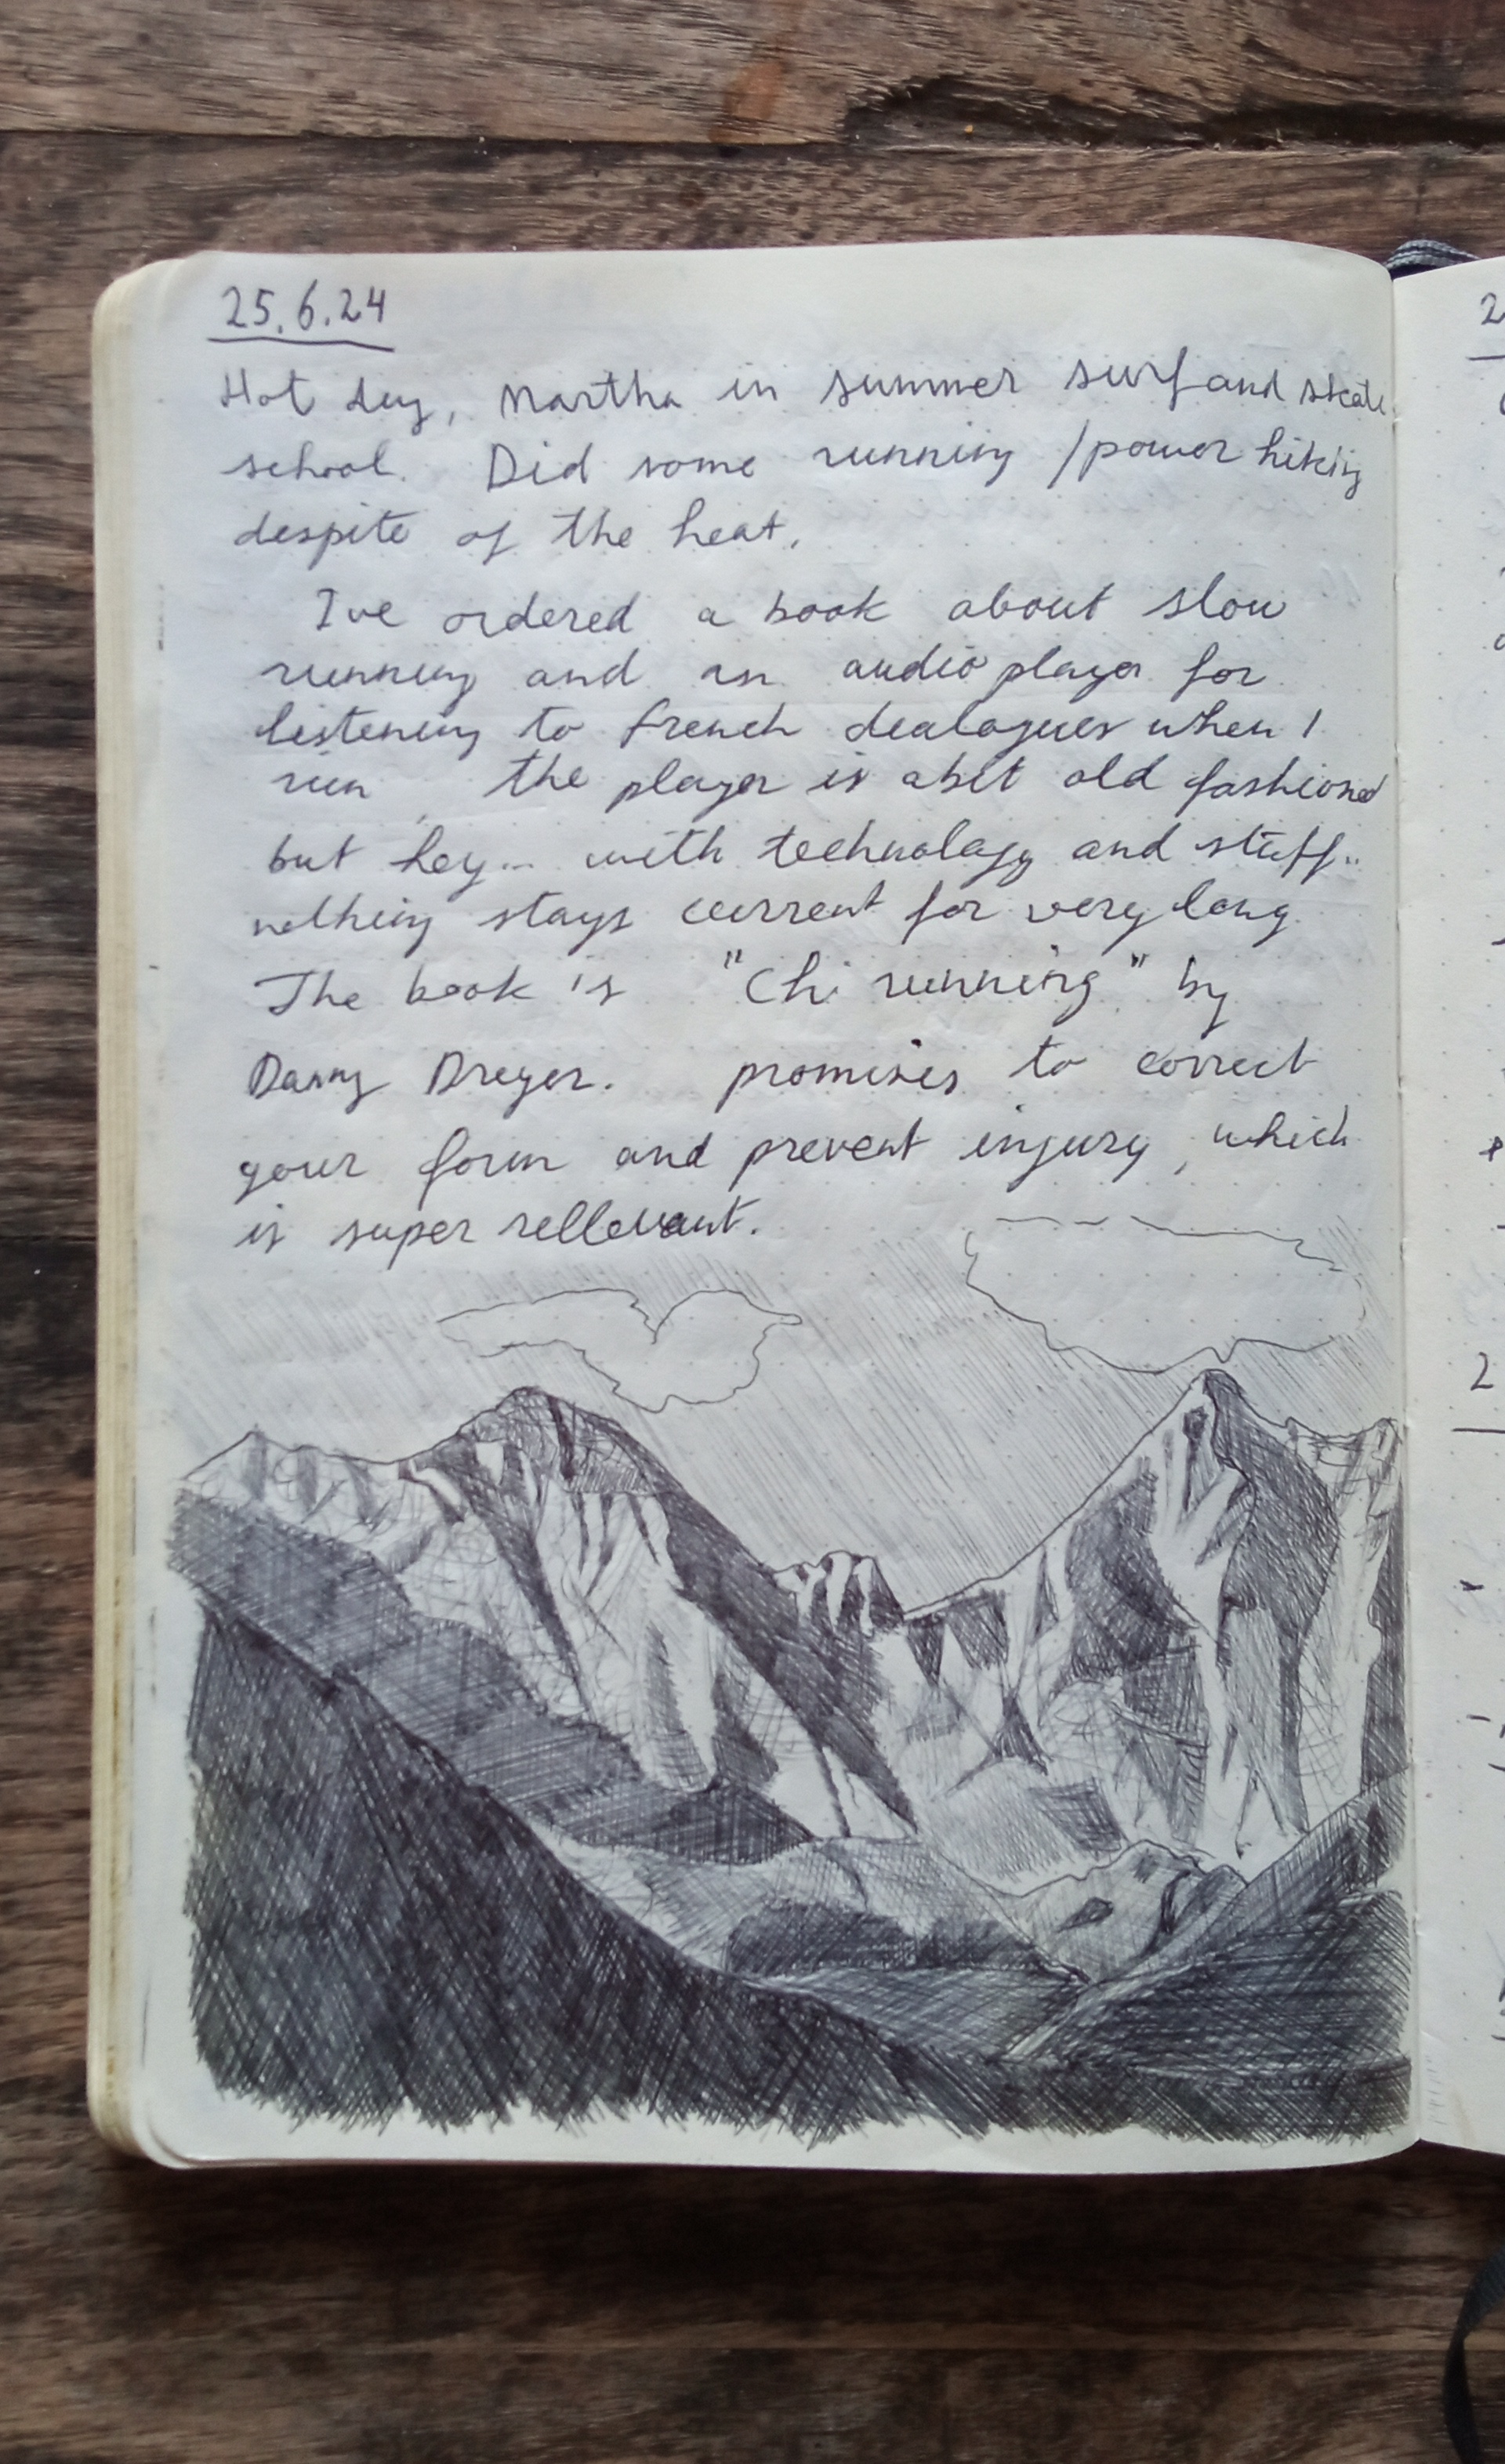 25.6.24
Hot day, Martha in summer surf and skate
school. Did some running / power hiking
despite of the heat.
I've ordered a book about slow
running and an audio player for
listening to french dealogues when I
run, the player is abit old fashioned
but hey... with technology and stuff..
nothing stays current for very long
The book is "Chi running" by
Danny Dreyer. promises to correct
your form and prevent injury, which
is super rellevant.
2
2